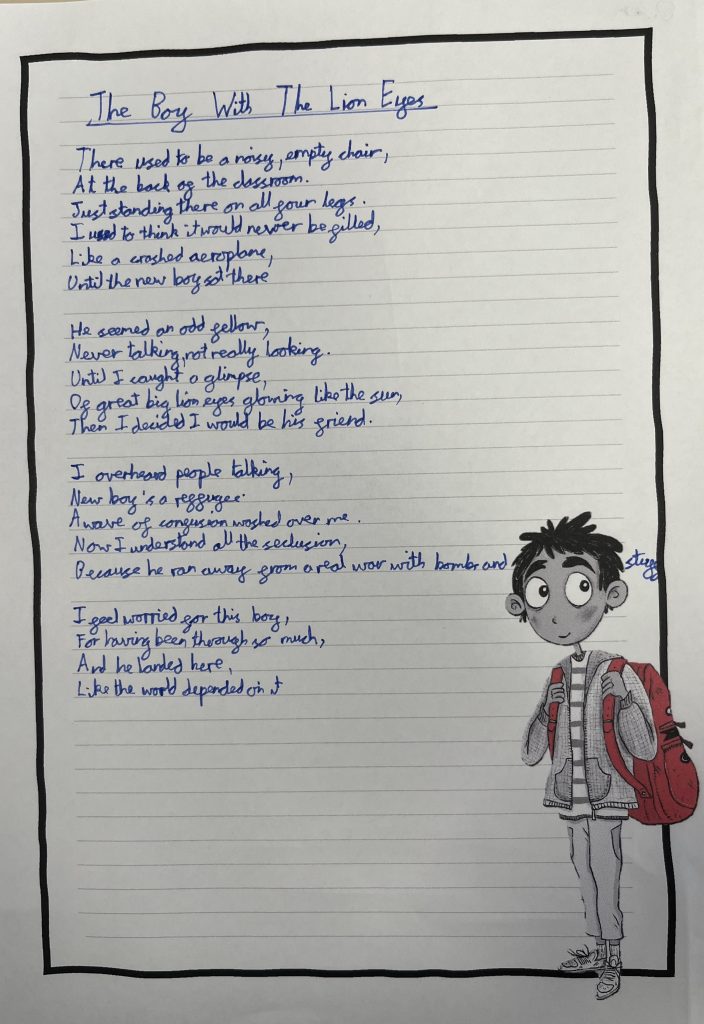 The Boy With The Lion Eyes
There used to be a noisy, empty chair,
At the back of the classroom.
Just standing there on all four legs.
I used to think it would never be filled,
Like a crashed aeroplane,
Until the new boy sat there
He seemed an odd fellow,
Never talking, not really looking.
Until I caught a glimpse,
Of great big lion eyes glowing like the sun,
Then I decided I would be his friend.
I overheard people talking,
New boy's a reffugee.
A wave of confusion washed over me.
Now I understand all the seclusion,
Because he ran away from a real war with bombs and stuff
I feel worried for this boy,
For having been through so much,
And he landed here,
Like the world depended on it